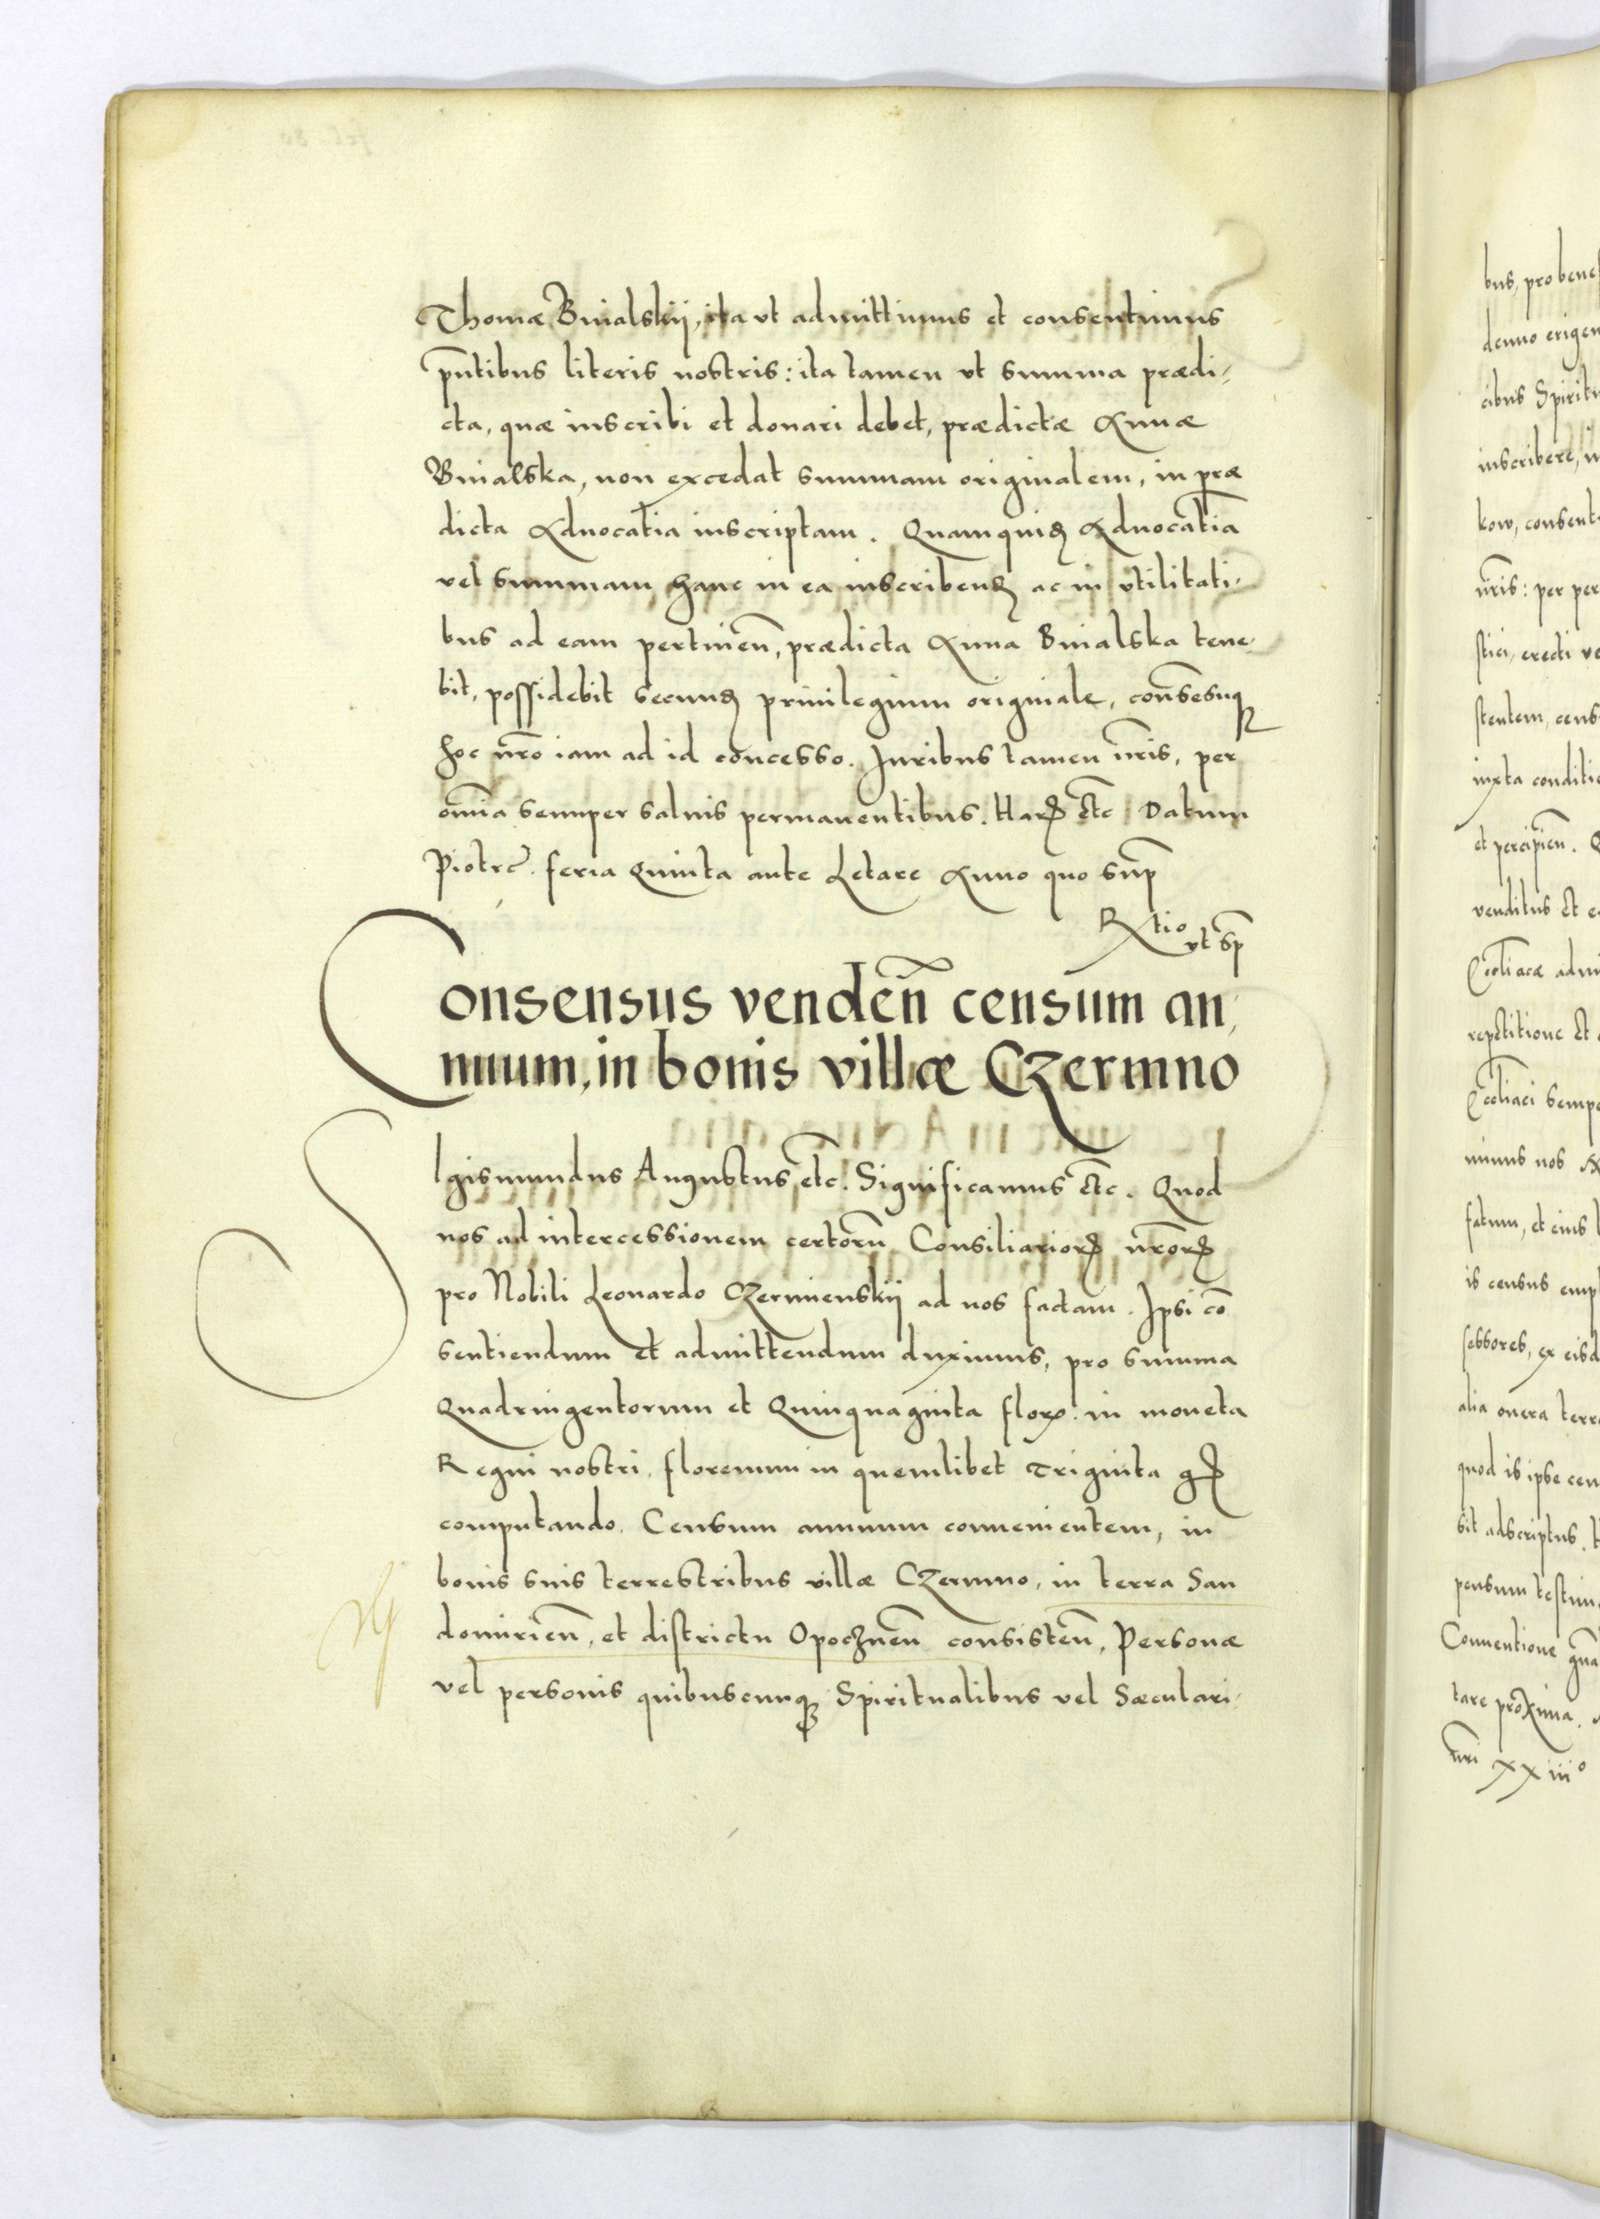 Thomæ Bnialskij, ita vt admittimus et consentimus
p̃ntibus literis nostris: ita tamen vt summa prædi-
cta, quæ inscribi et donari debet, prædictæ Annæ
Bnialska, non excedat summam originalem, in præ
dicta Aduocatia inscriptam. Quamquid Aduocatiã
vel summam hanc in ea inscribend ac in vtilitati-
bus ad eam pertineñ, prædicta Anna Bnialska tene-
bit, possidebit secund priuilegium originale, consesuq
hoc ñro iam ad id concesso. Iuribus tamen ñris, per
omĩa semper saluis permanentibus. Har etc Datum
Piotrc. feria Quinta ante Letare Anno quo sup
Rtio
vt sp
Consensus vendeñ censum an-
nuum, in bonis villæ Czermno
SIgismundus Augustus etc. Significamus etc. Quod
nos ad intercessionem certorũ Consiliarior ñror
pro Nobili Leonardo Czermienskij ad nos factam. Ipsi cõ
sentiendum et admittendum duximus, pro summa
Quadringentorum et Quinquaginta flor. in moneta
Regni nostri, florenum in quemlibet Triginta gr
computando. Censum annuum conuenientem, in
bonis suis terrestribus villæ Czermno, in terra San
domirieñ, et districtu Opoczneñ consisteñ, Personæ
vel personis quibuscunq Spiritualibus vel Sæculari-
bus, pro bene
denuo erigen
cibus Spiritu
inscribere,
kow, consent
ñris: per per
stici, erecti ve
stentem, cens
iuxta conditi
et percipieñ.
venditus et e
Eccliacæ admi
repetitione et
Eccliaci sempe
nimus nos
fatum, et eius
is census emp
sessores, ex eisd
alia onera terr
quod is ipse cen
sit adscriptus.
pensum testim
Conuentione gña
tare proxima.
ñri xxiiiº